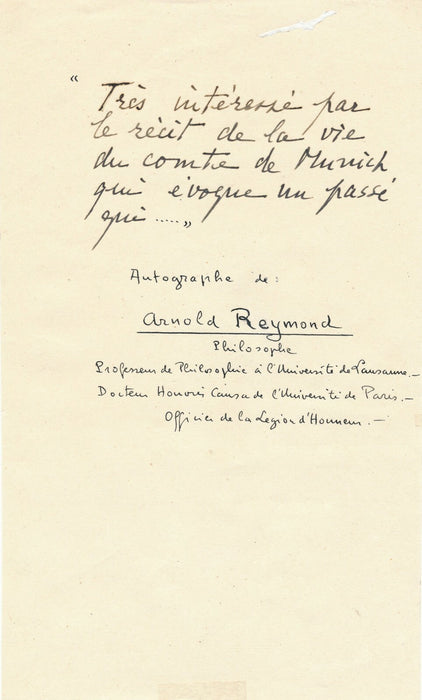 “
Très intéressé par
le récit de la vie
du comte de Munich
qui évoque un passé
qui ..... „
Autographe de :
Arnold Reymond
Philosophe
Professeur de Philosophie à l'Université de Lausanne.—
Docteur Honoris Causa de l'Université de Paris.—
Officier de la Legion d'Honneur.—